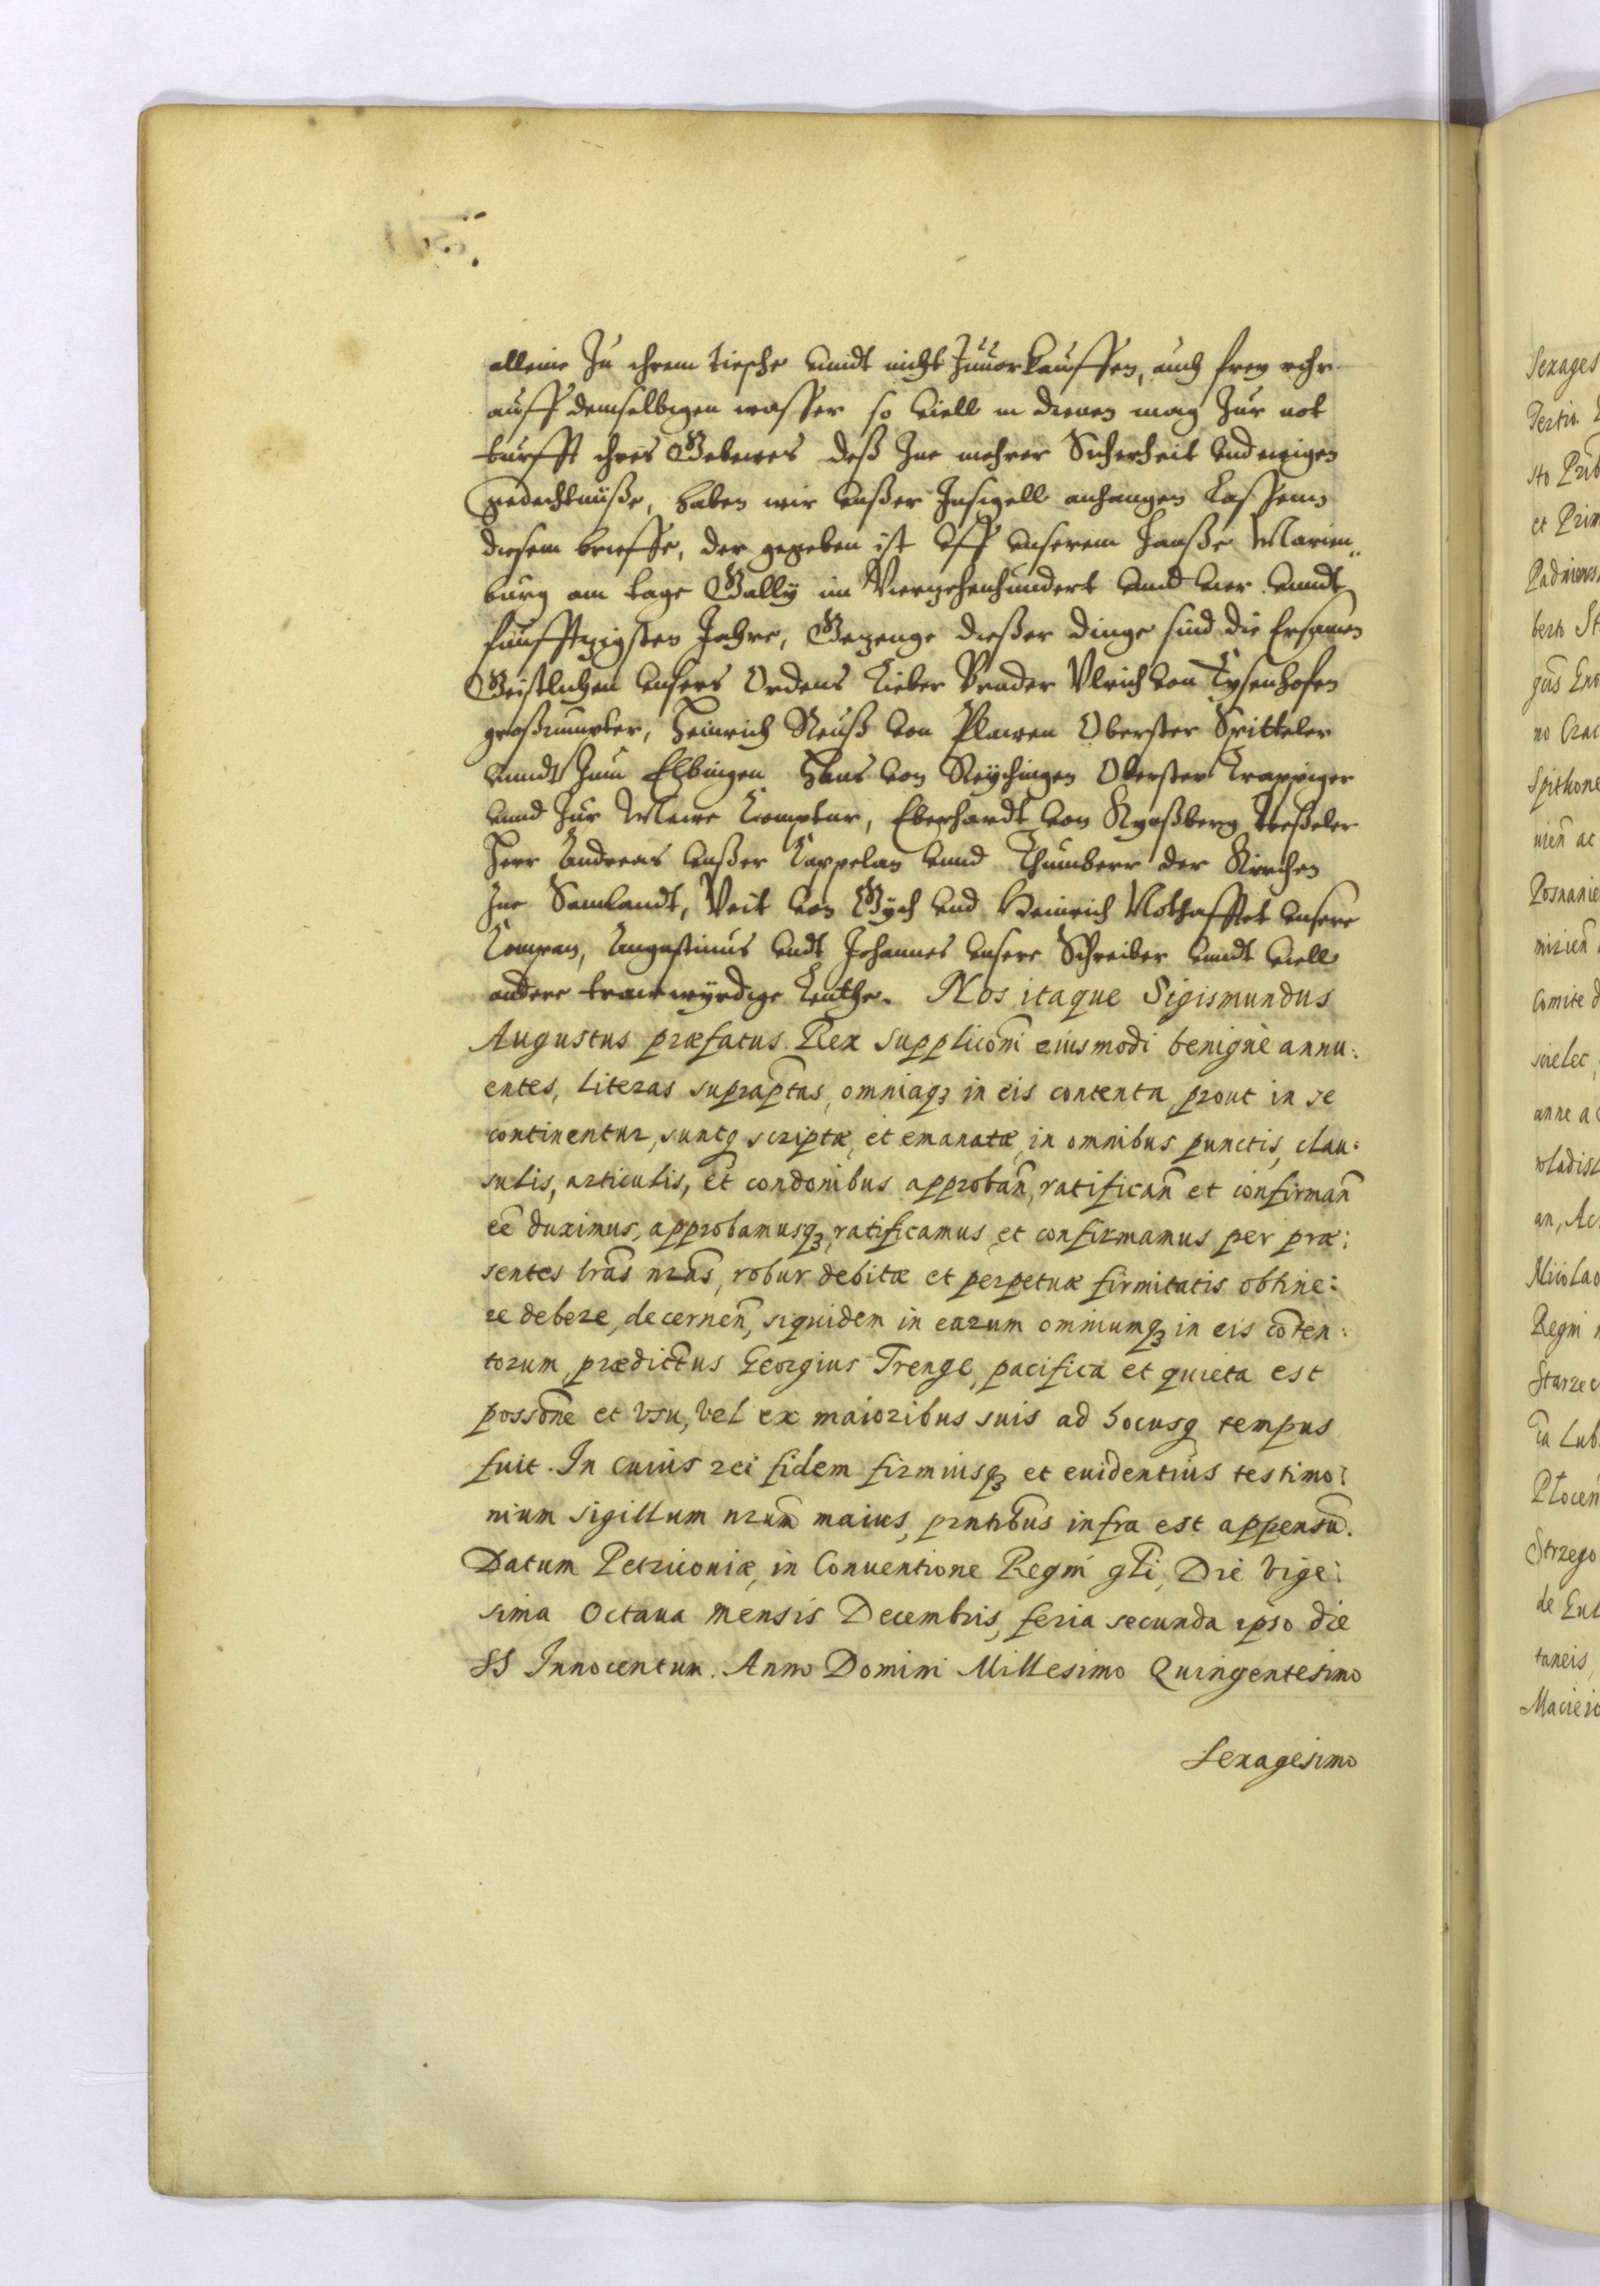 alleine Zu ihrem tiesche vnndt nicht Zuuorkauffen, auch frey rohr
auff demselbigen wasser so viell in dienen mag Zur not
turfft ihres Gebewes deß Zue mehrer Sicherheit vnd ewigen
gedechtnüße, haben wir vnßer Insigell anhangen Lassenn
diesem brieffe, der gegeben ist vff vnserem Hauße Marien„
burg am tage Gally im Vierzehenhundert vnnd vier vnndt
funfftzigsten Jahre, Gezeuge dießer dinge sind die Ersamen
Geistlichen vnsers Ordens Lieber Bruder Vlrich von Eysenhofen
großkumpter, Heinrich Reuß von Plawen Oberster Spitteler
vnndt Zum Elbingen Hans von Reychingen Oberster Trappiger
vnnd Zur Mewe Kompter, Eberhardt von Kynßberg treßeler
Herr Andreas vnßer Cappelan vnnd Thumherr der Kirchen
Zue Samlandt, Veit von Gych vnd Heinrich Nothafftet vnsere
Kompan, Augustinus vndt Johannes vnsere Schreiber vnndt viell
andere trawwyrdige Leuthe. Nos itaque Sigismundus
Augustus præfatus Rex supplicõni eiusmodi benignè annu:
entes, literas supraptas, omniaqꝫ in eis contenta prout in se
continentur, suntq scriptæ, et emanatæ, in omnibus punctis, clau:
sulis, articulis, et condonibus approbañ, ratificañ et confirmañ
eē duximus, approbamusqꝫ, ratificamus, et confirmamus per præ:
sentes lrãs nrãs, robur debitæ et perpetuæ firmitatis obtine:
re debere, decerneñ, siquidem in earum omniumqꝫ in eis cõten:
torum, prædictus Georgius Trenge, pacifica et quieta est
possõne et vsu, vel ex maioribus suis ad hocusq tempus
fuit. In cuius rei fidem firmiusqꝫ et euidentius testimo:
nium sigillum nrum maius, pntibus infra est appensũ.
Datum Petricouiæ, in Conuentione Regni gl̃i, Die vige:
sima Octaua mensis Decembris, feria secunda ipso die
SS Innocentum. Anno Domini Millesimo Quingentesimo
Sexagesimo
Sexages
Tertio
sto Prib
et Prim
no Crac
Spithone
Posnanie
Comite d
anne ac
an, Ac
Nicolao
Regni
Starzec
Strzego
taneis,